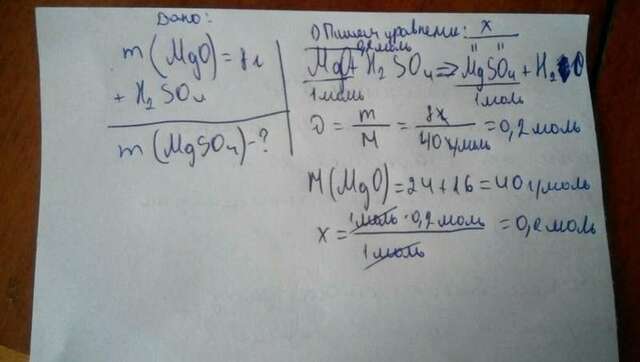 Дано:
m(MgO)=8г
+ H2SO4
m(MgSO4)-?
1) Пишем уравнение: x
0,2 моль
MgO + H2SO4 => MgSO4 + H2O
1 моль 1 моль
ν = m/M = 8г/40г/моль = 0,2 моль
M(MgO)=24+16=40г/моль
x = 1моль·0,2мол/1моль = 0,2 моль